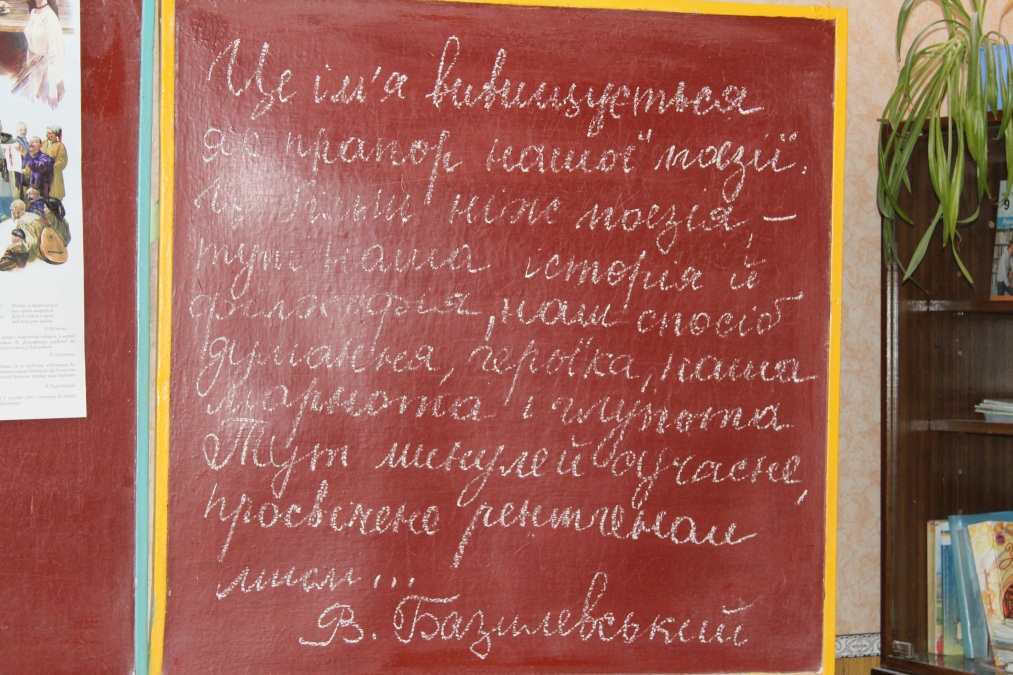 Це ім'я вивищується
як прапор нашої поезії.
Це більш ніж поезія, –
тут наша історія й
філософія, наш спосіб
думання, героїка, наша
марнота і глупота
Тут минуле й сучасне,
просвічене рентгеном
В. Базилевський
9